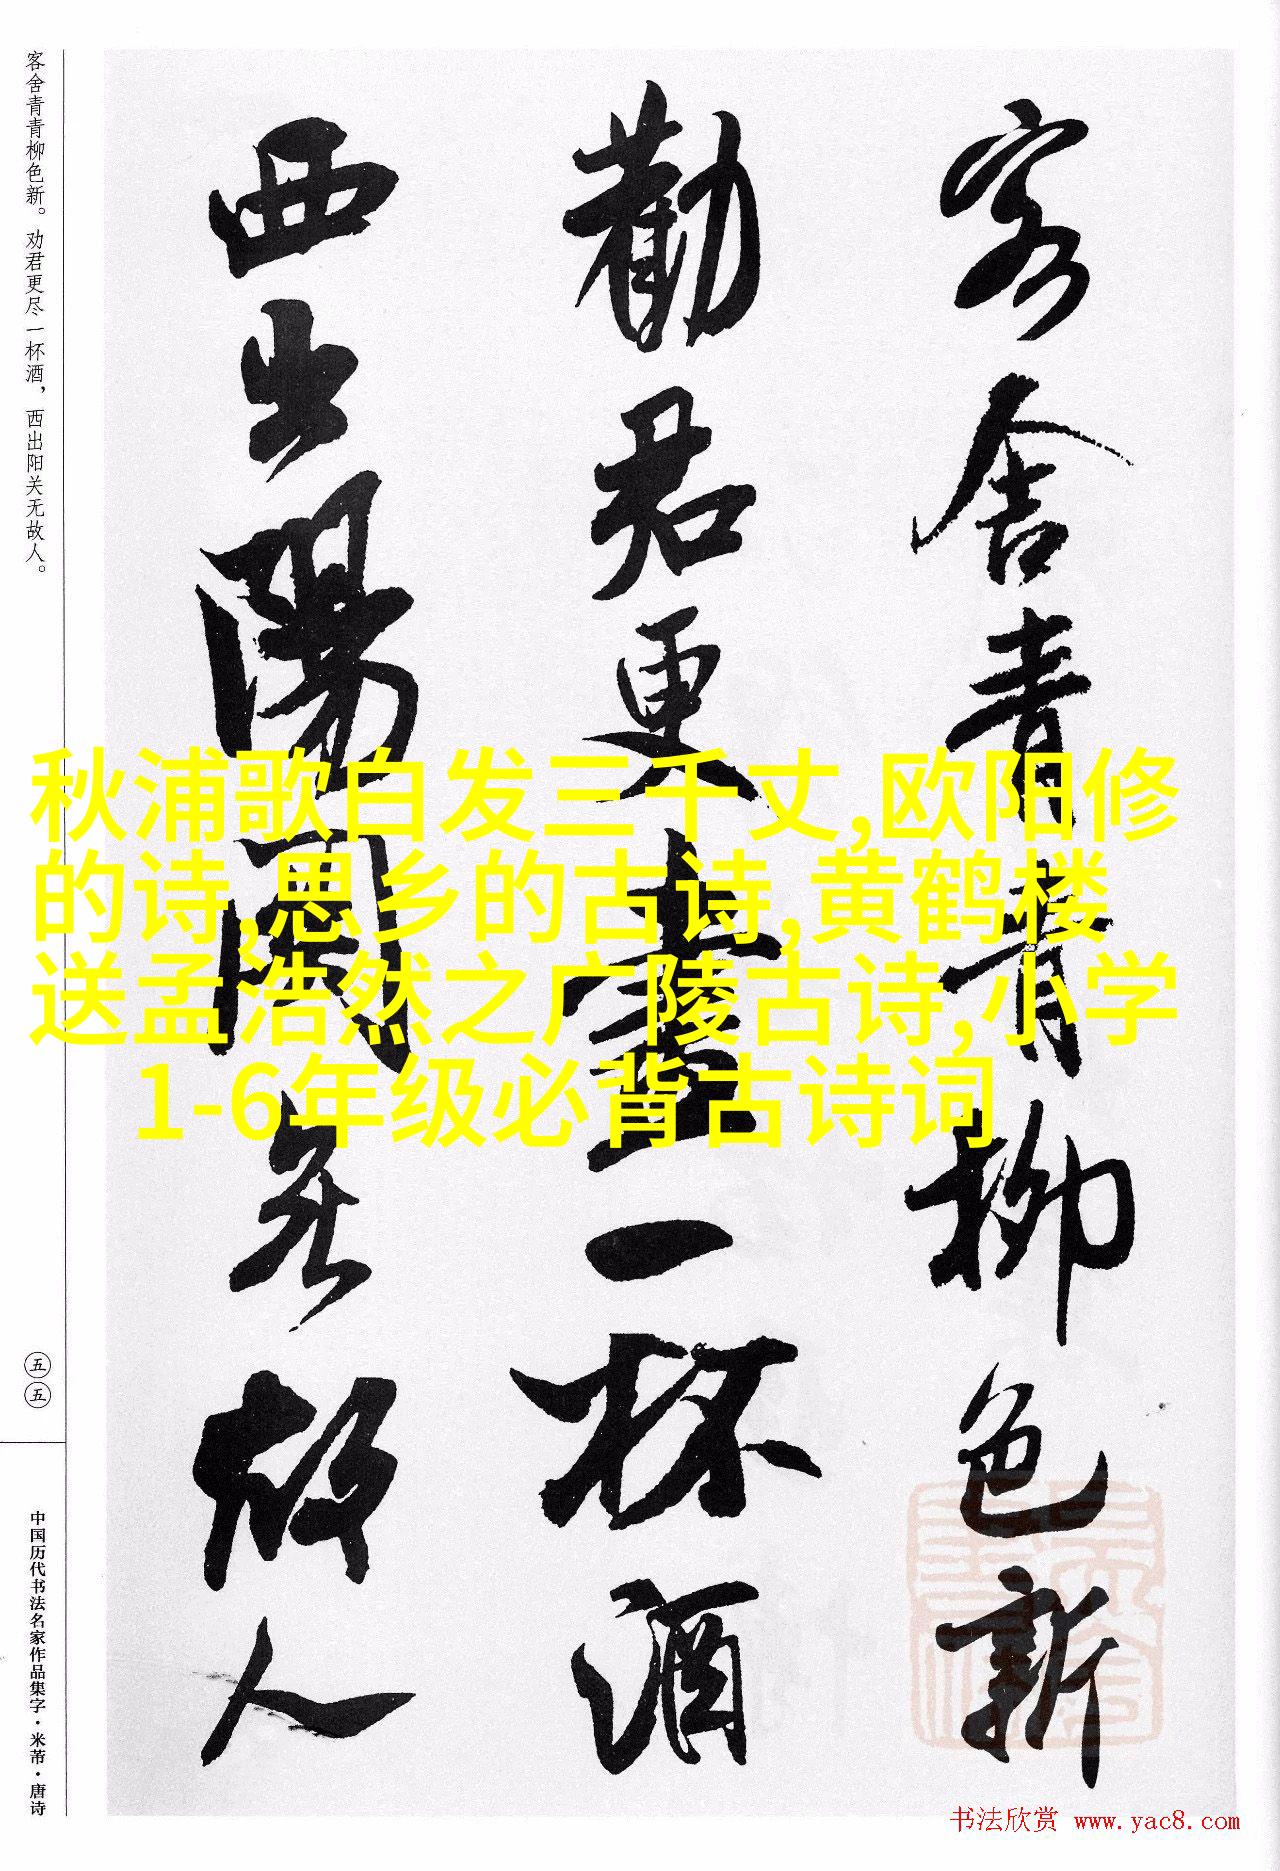 客舍青青柳色新
勸君更盡一杯酒
西出陽關無故人
客舍青青柳色新。劝君更尽一杯酒，西出阳关无故人。
五五
中国历代书法名家作品集字·米芾·唐诗
秋浦歌白发三千丈,欧阳修
的诗,思乡的古诗,黄鹤楼
送孟浩然之广陵古诗,小学
1-6年级必背古诗词
书法欣赏 www.yac8.com